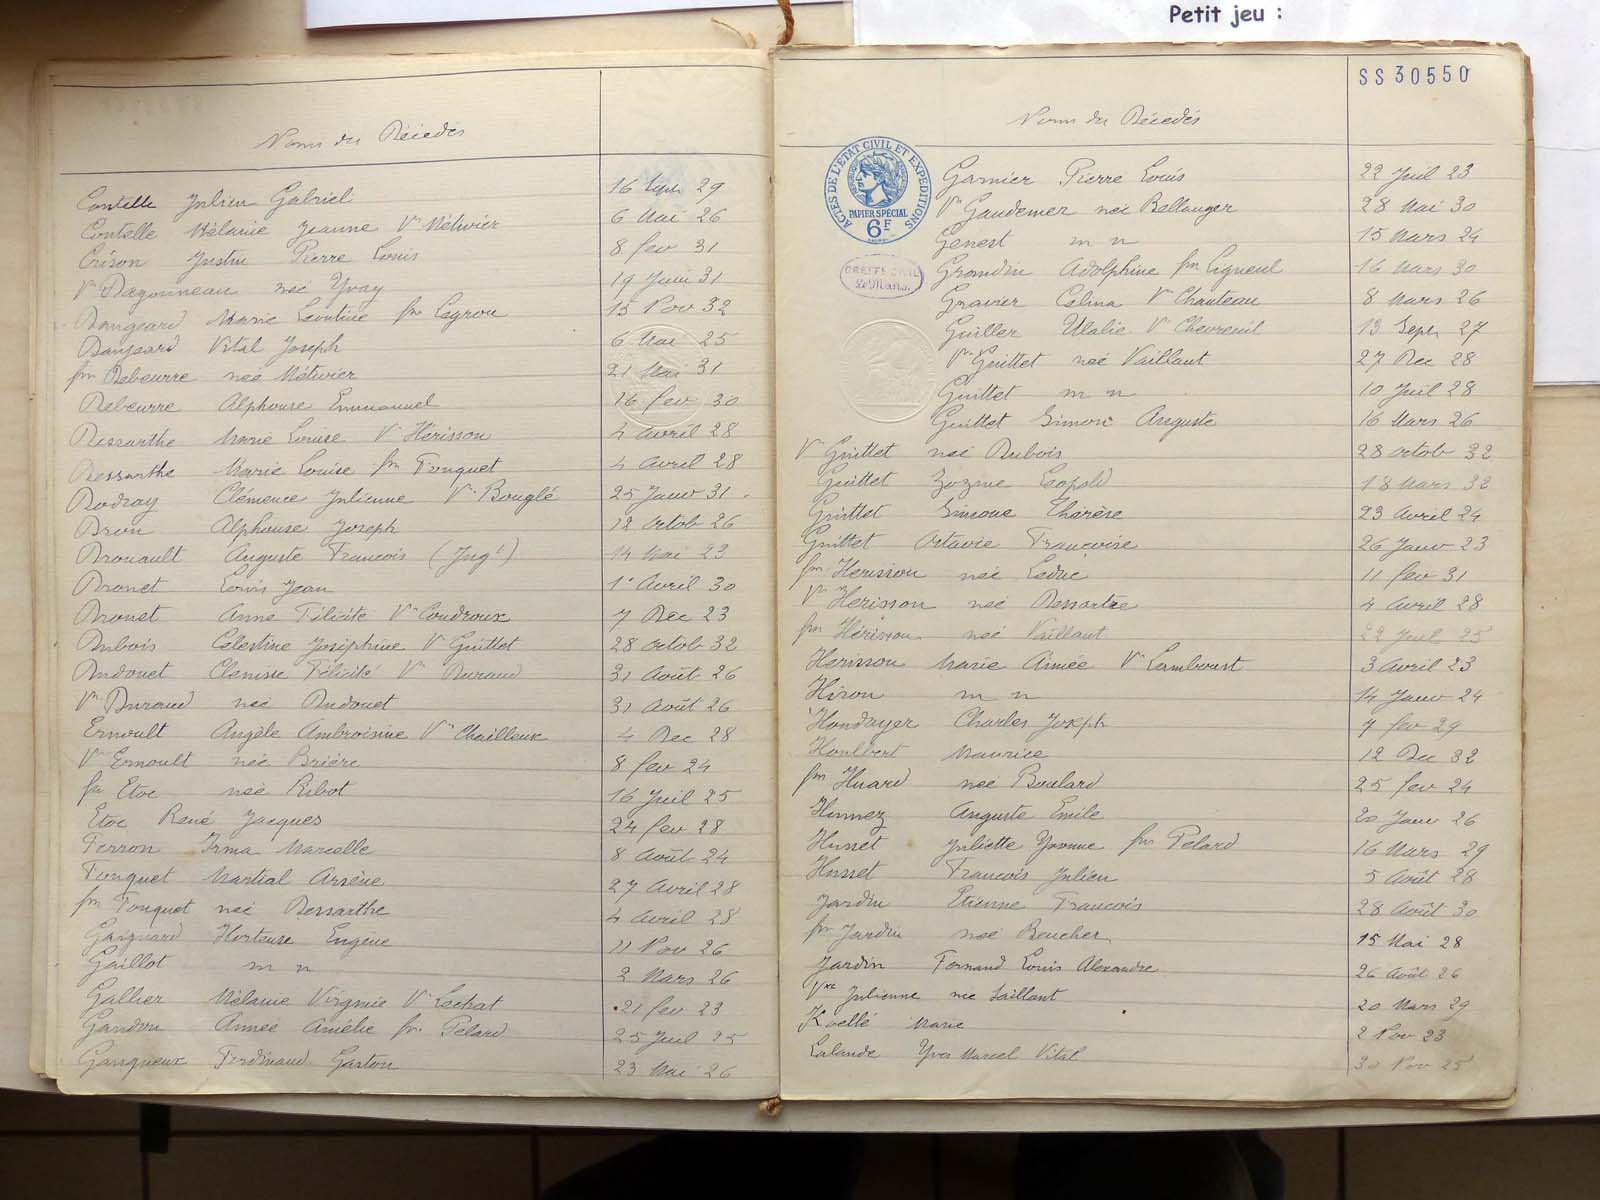 Petit jeu :
Noms des Décédés
Contelle Julien Gabriel 16 Sept 29
Contelle Mélanie Jeanne Vve Métivier 6 Mai 26
Crison Justin Pierre Louis 8 fev 31
Vve Dazonneau née Yvay 19 Juin 31
Dangeard Marie Léontine fme Legrou 15 Nov 32
Dangeard Vital Joseph 6 Mai 25
fme Debeurre née Métivier 21 Mai 31
Debeurre Alphonse Emmanuel 16 fev 30
Dessarthe Marie Louise Vve Hérisson 4 avril 28
Dessarthe Marie Louise fme Fouquet 4 avril 28
Dodray Clémence Julienne Vve Bouglé 25 Janv 31
Dron Alphonse Joseph 12 octob 26
Drouault Auguste François (Jugt) 14 Mai 23
Drouet Louis Jean 1er Avril 30
Drouet Anne Félicité Vve Coudroux 7 Dec 23
Dubois Celestine Joséphine Vve Guittet 28 octob 32
Dudouet Clenisse Félicité Vve Durand 31 Août 26
Vve Durand née Dudouet 31 Août 26
Ernoult Angèle Ambroisine Vve Chailleux 4 Dec 28
Vve Ernoult née Brière 8 fev 24
fme Etoc née Ribot 16 Juil 25
Etoc René Jacques 24 fev 28
Ferron Irma Marcelle 8 Août 24
Fouquet Martial Arsène 27 Avril 28
fme Fouquet née Dessarthe 4 avril 28
Gaignard Hortense Engène 11 Nov 26
Gaillot m n 2 Mars 26
Gallier Mélanie Virginie Vve Lechat 21 fev 23
Gandon Aimée Amélie fme Pelard 25 Juil 25
Garrigneux Ferdinand Gaston 23 Mai 26
SS 30550
Noms des Décédés
ACTES DE L'ETAT CIVIL ET EXPEDITIONS
PAPIER SPÉCIAL
6F
GREFFE CIVIL
Le Mans
Garnier Pierre Louis 22 Juil 23
Vve Gaudemer née Bellanger 28 Mai 30
Genest m n 15 Mars 24
Grandin Adolphine fme Ligneul 16 Mars 30
Gravier Celina Vve Chauteau 8 Mars 26
Guiller Ulalie Vve Chevreuil 13 Sept 27
Vve Guittet née Vaillant 27 Dec 28
Guittet m n 10 Juil 28
Guittet Simon Auguste 16 Mars 26
Vve Guittet née Dubois 28 octob 32
Guittet Zozime Leopold 18 Mars 32
Guittet Simone Thérèse 23 Avril 24
Guittet Octavie Françoise 26 Janv 23
fme Herisson née Leduc 11 fev 31
Vve Herisson née Dessartre 4 avril 28
fme Hérisson née Vaillant 22 Juil 25
Herisson Marie Aimée Vve Lamboust 3 avril 23
Hiron m n 14 Janv 24
Hondayer Charles Joseph 7 fev 29
Houlbert Maurice 12 Dec 32
fme Huard née Boulard 25 fev 24
Hunnez Auguste Emile 20 Janv 26
Husset Juliette Yvonne fme Pelard 16 Mars 29
Husset François Julien 5 Août 28
Jardin Etienne François 28 Août 30
fme Jardin née Beucher 15 Mai 28
Jardin Fernand Louis Alexandre 26 Août 26
Vve Julienne née Saillant 20 Mars 29
Koellé Marie 2 Nov 23
Lalande Yves Marcel Vital 30 Nov 25